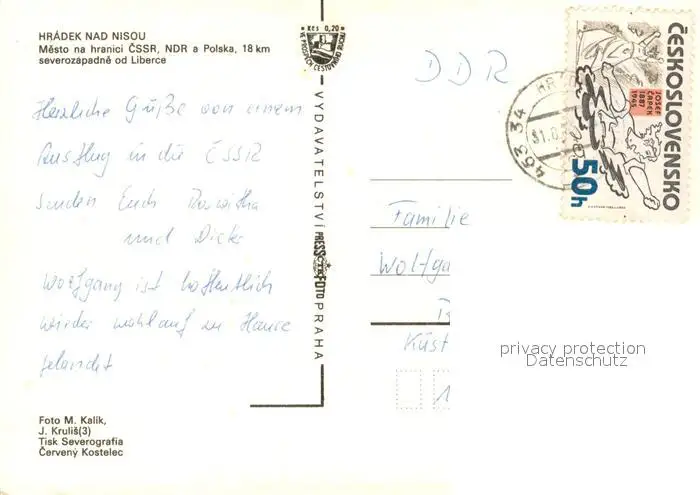 HRÁDEK NAD NISOU
Město na hranici ČSSR, NDR a Polska, 18 km
severozápadně od Liberce
Herzliche Grüße von einem
Ausflug in die ČSSR
senden Euch
und Dieter
Wolfgang ist hoffentlich
wieder wohlauf zu Hause
gelandet
Foto M. Kalík,
J. Kruliš(3)
Tisk Severografia
Červený Kostelec
Kčs 0,20
VYDAVATELSTVÍ PRESSFOTO PRAHA
DDR
463 34
ČESKOSLOVENSKO
JOSEF
ČAPEK
1887
1945
50h
Familie
Wolfga
Küst
privacy protection
Datenschutz